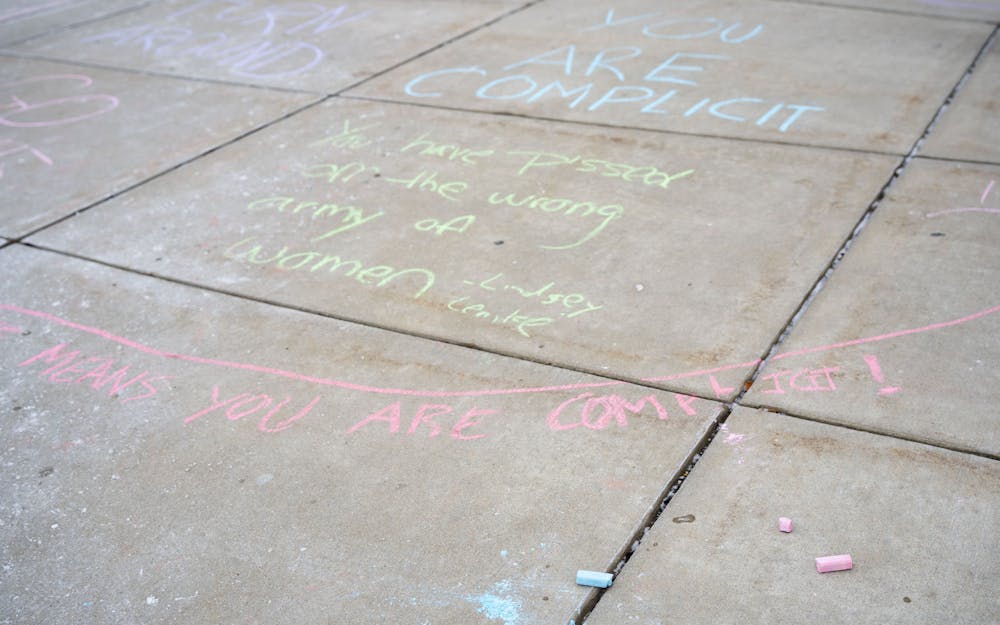 TURN
AROUND
YOU
ARE
COMPLICIT
You have pissed
off the wrong
army of
women
-Lindsey
MEANS YOU ARE COMPLICIT!